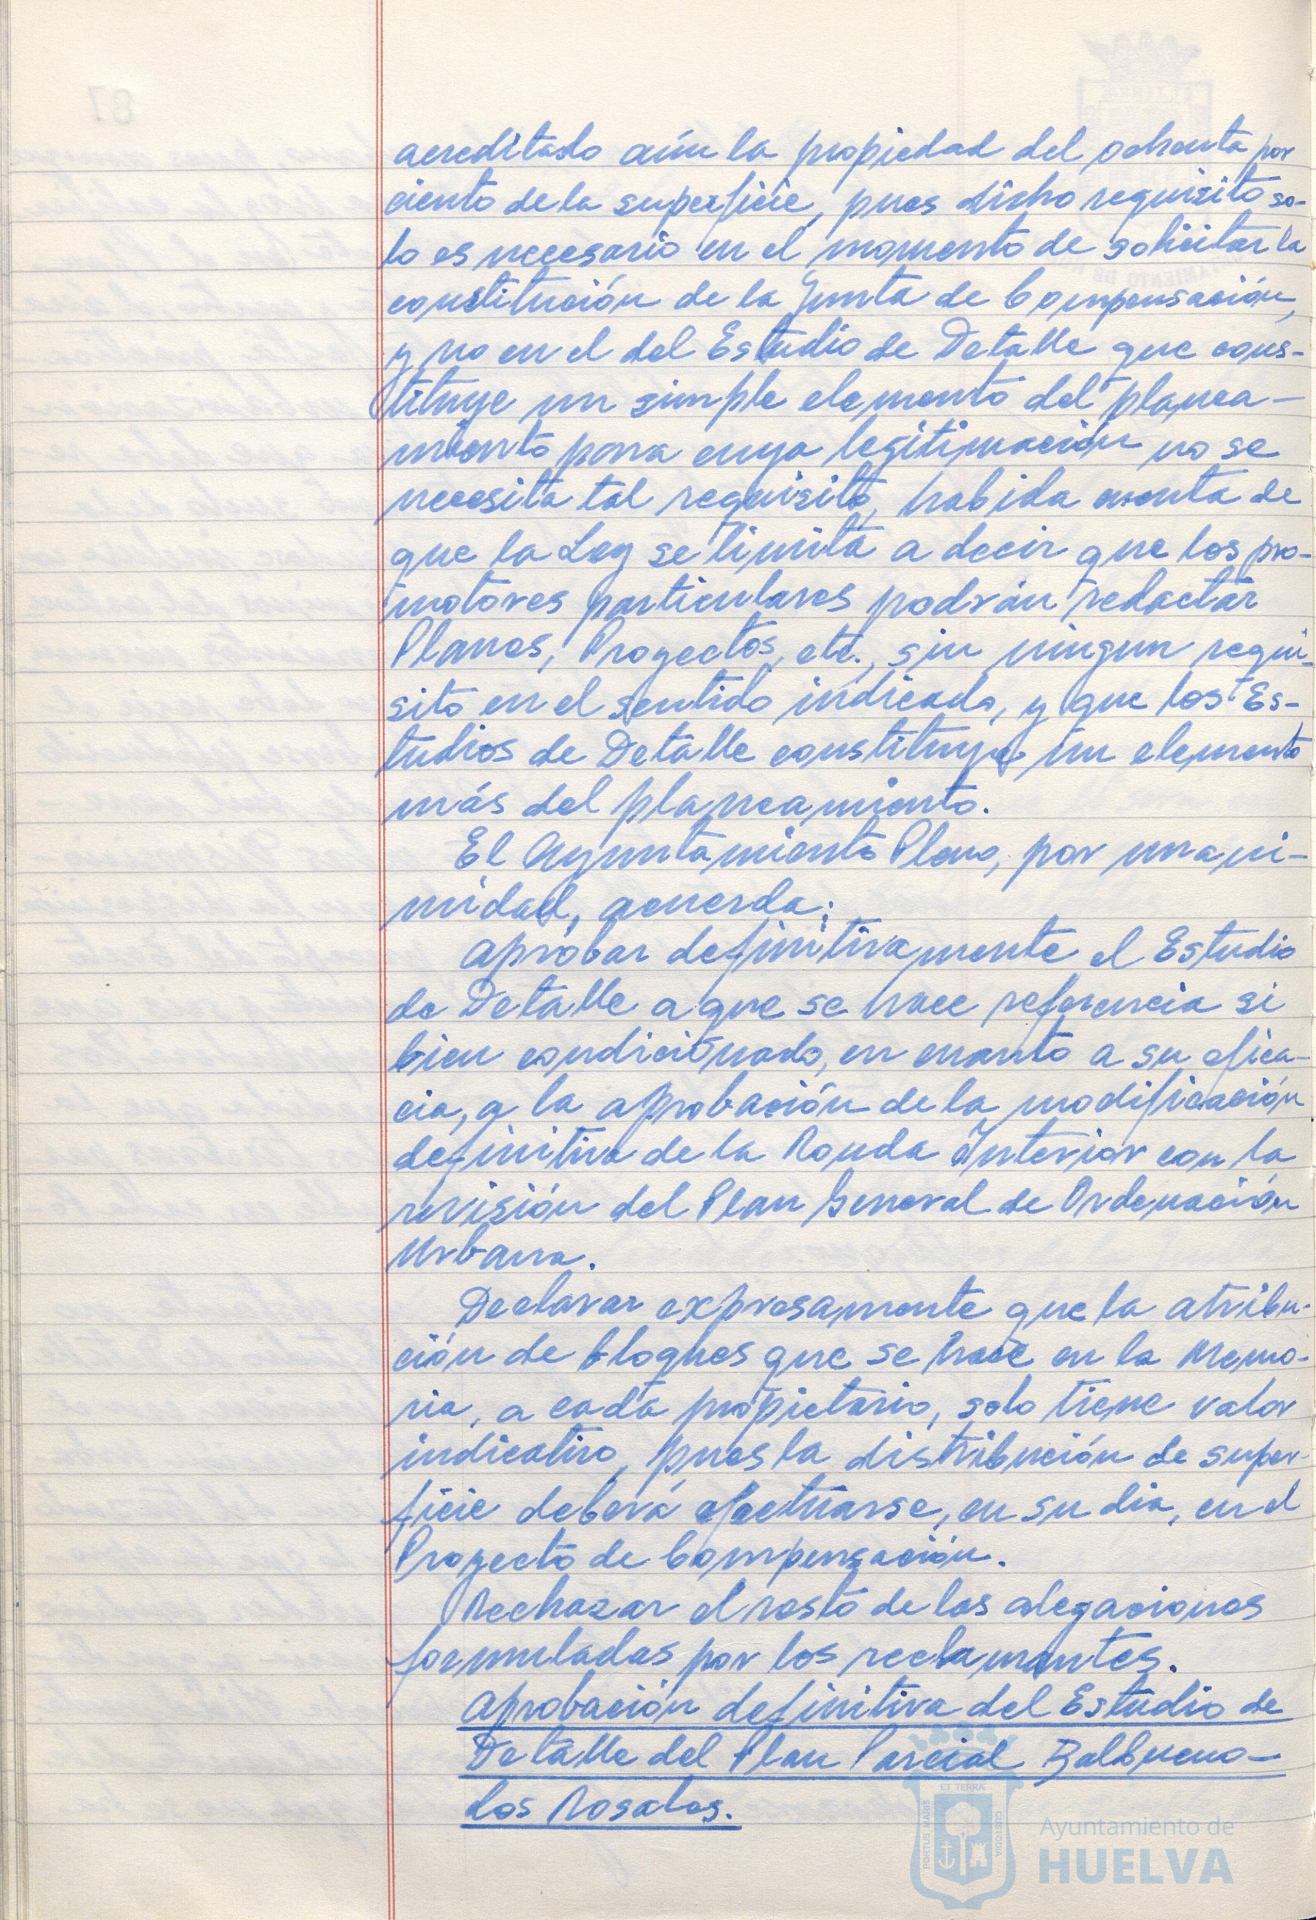 acreditado aún la propiedad del ochenta por
ciento de la superficie, pues dicho requisito so-
lo es necesario en el momento de solicitar la
constitución de la Junta de Compensación,
y no en el del Estudio de Detalle que cons-
tituye un simple elemento del planea-
miento para cuya legitimación no se
necesita tal requisito, habida cuenta de
que la Ley se limita a decir que los pro-
motores particulares podrán redactar
Planes, Proyectos, etc., sin ningun requi-
sito en el sentido indicado, y que los Es-
tudios de Detalle constituye un elemento
más del planeamiento.
El Ayuntamiento Pleno, por unani-
midad, acuerda:
Aprobar definitivamente el Estudio
de Detalle a que se hace referencia si
bien condicionado, en cuanto a su efica-
cia, a la aprobación de la modificación
definitiva de la Ronda Interior con la
revisión del Plan General de Ordenación
Urbana.
Declarar expresamente que la atribu-
ción de bloques que se hace en la Memo-
ria, a cada propietario, solo tiene valor
indicativo, pues la distribución de super-
ficie deberá efectuarse, en su dia, en el
Proyecto de Compensación.
Rechazar el resto de las alegaciones
formuladas por los reclamantes.
Aprobación definitiva del Estudio de
Detalle del Plan Parcial Balbueno-
Los Rosales.
PORTUS MARIS ET TERRA CUSTODIA
Ayuntamiento de
HUELVA